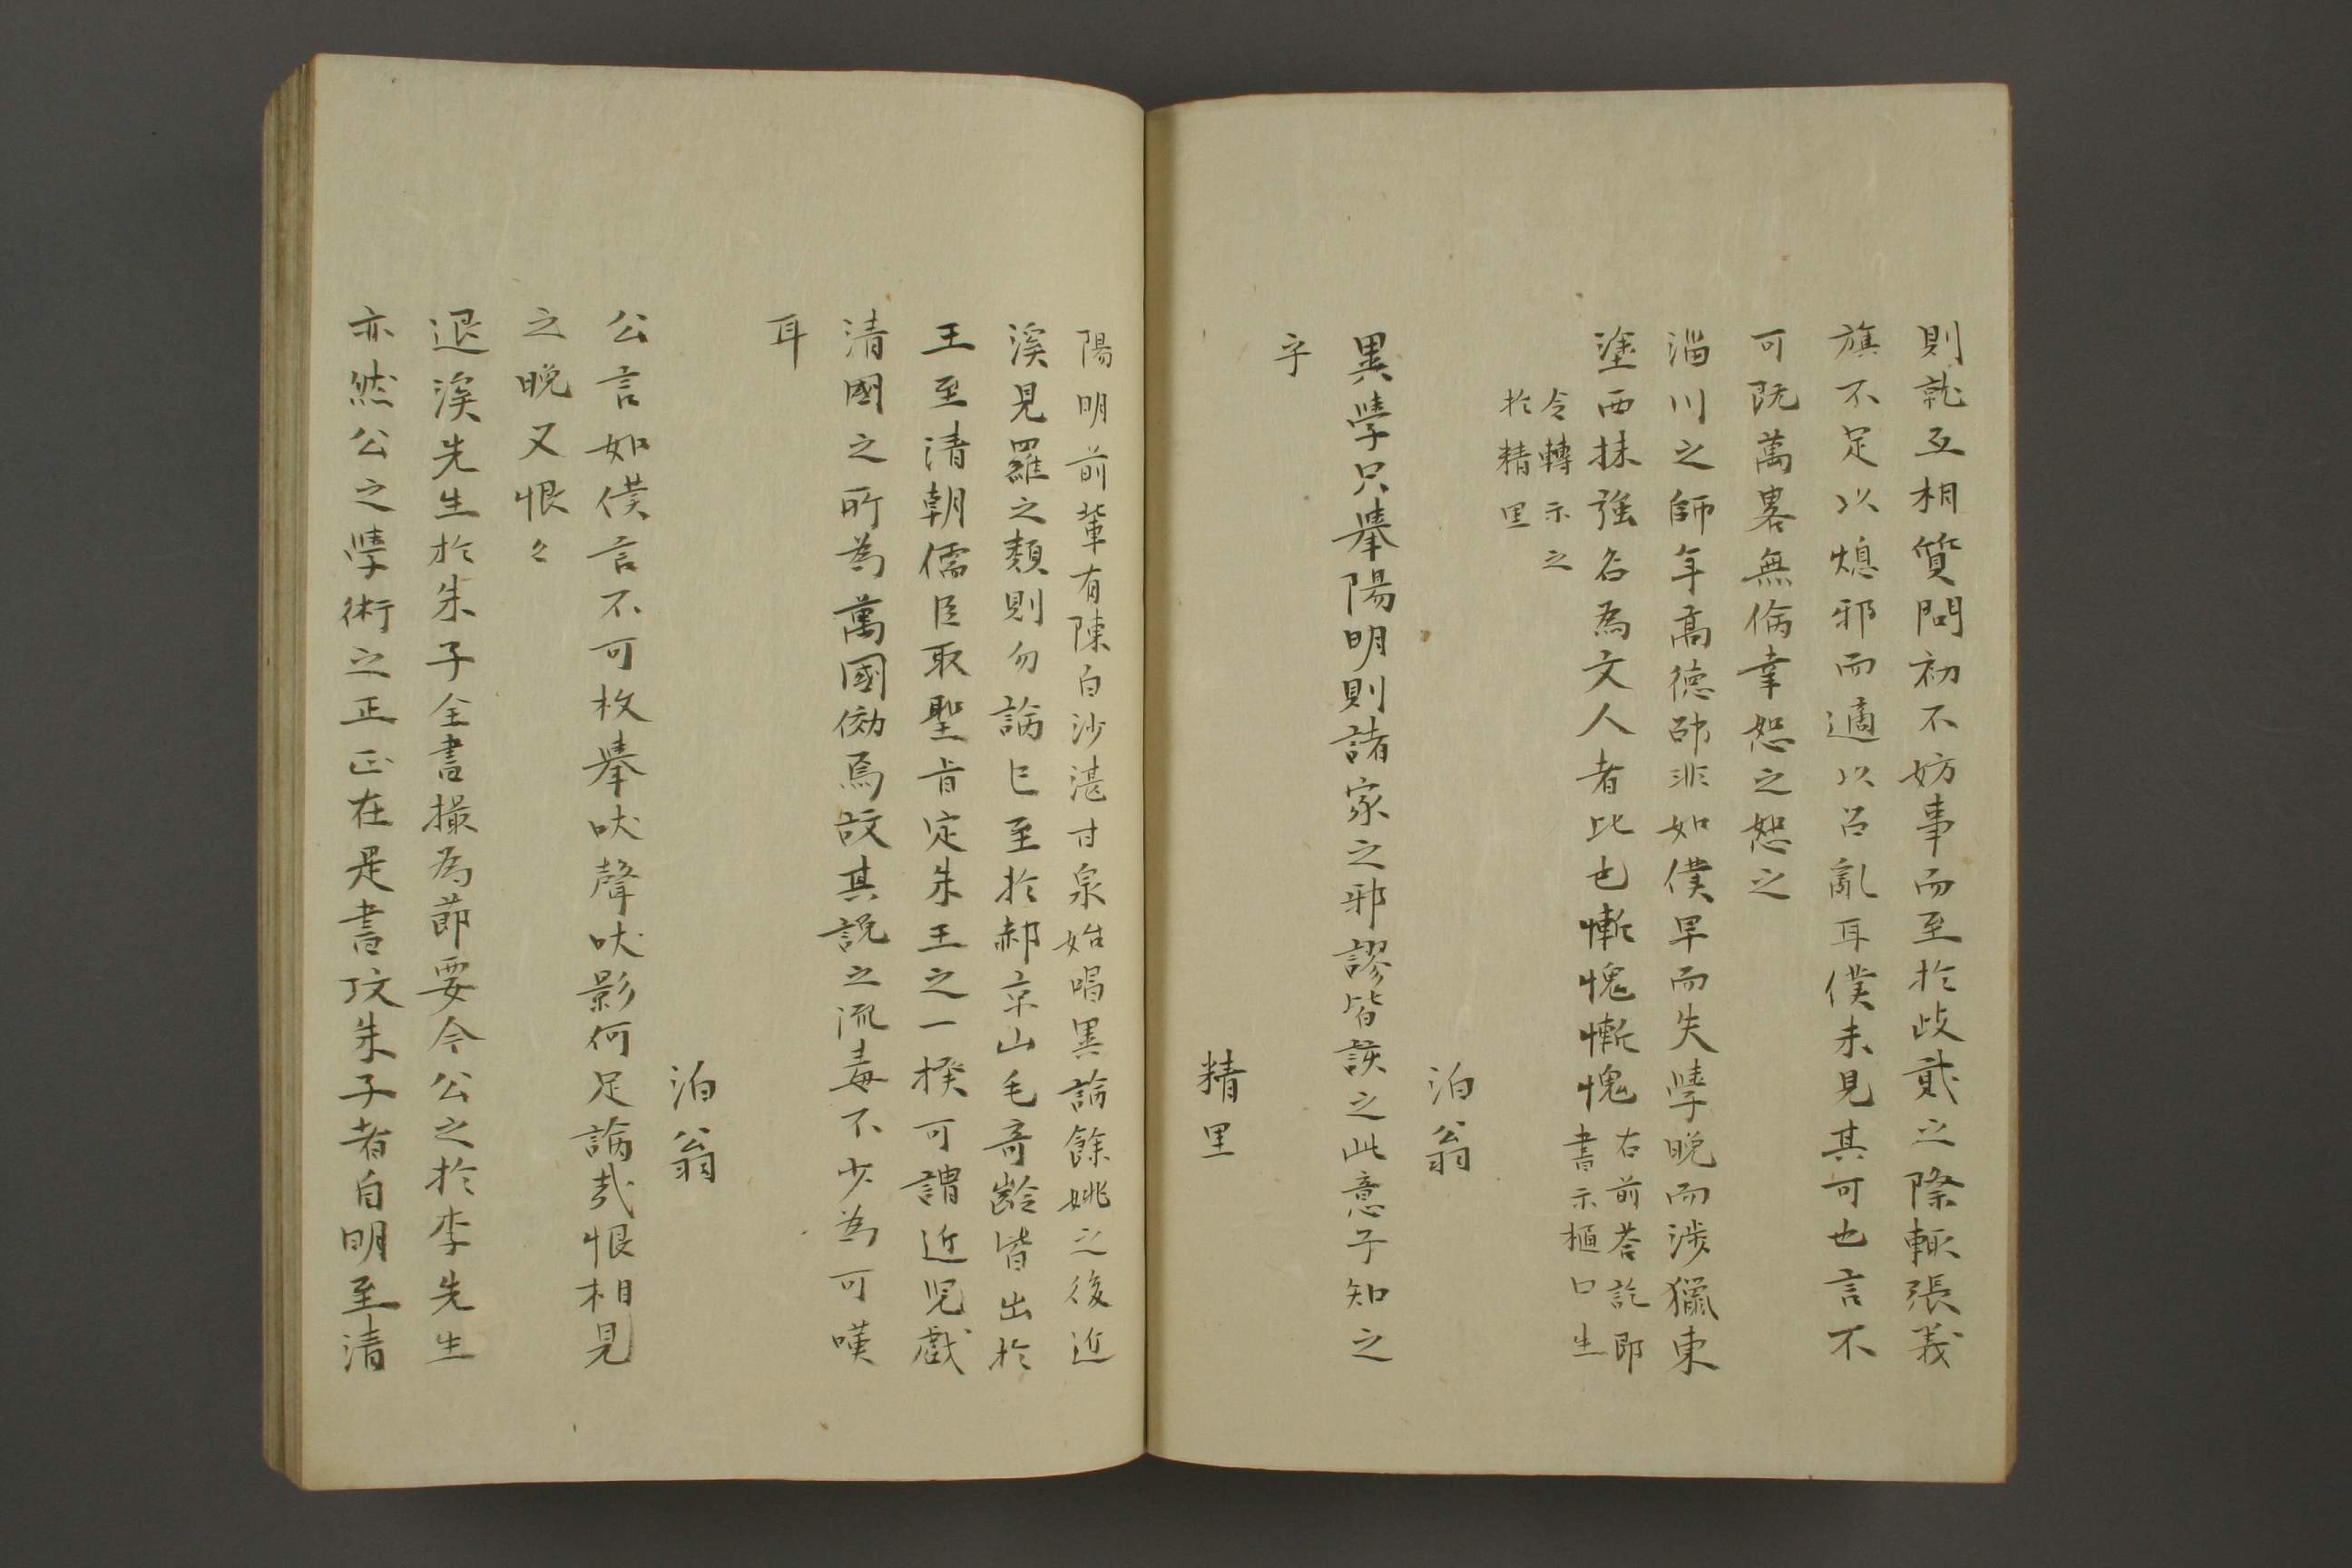 則就互相質問初不妨事而至於歧貳之際輒張義
旗不足以熄邪而適以召亂耳僕未見其可也言不
可既萬畧無倫幸恕之恕之
淄川之師年高德卲非如僕早而失學晚而涉獵東
塗西抹強名為文人者比也慚愧慚愧右前荅訖即
書示樋口生
令轉示之
於精里
泊翁
異學只舉陽明則諸家之邪謬皆該之此意子知之
乎
精里
陽明前輩有陳白沙湛甘泉始唱異論餘姚之後近
溪見羅之類則勿論已至於郝京山毛奇齡皆出於
王至清朝儒臣取聖旨定朱王之一揆可謂近児戲
清國之所為萬國傚焉故其說之流毒不少為可嘆
耳
泊翁
公言如僕言不可枚舉吠聲吠影何足論哉恨相見
之晚又恨々
退溪先生於朱子全書撮為節要今公之於李先生
亦然公之學術之正正在是書攻朱子者自明至清